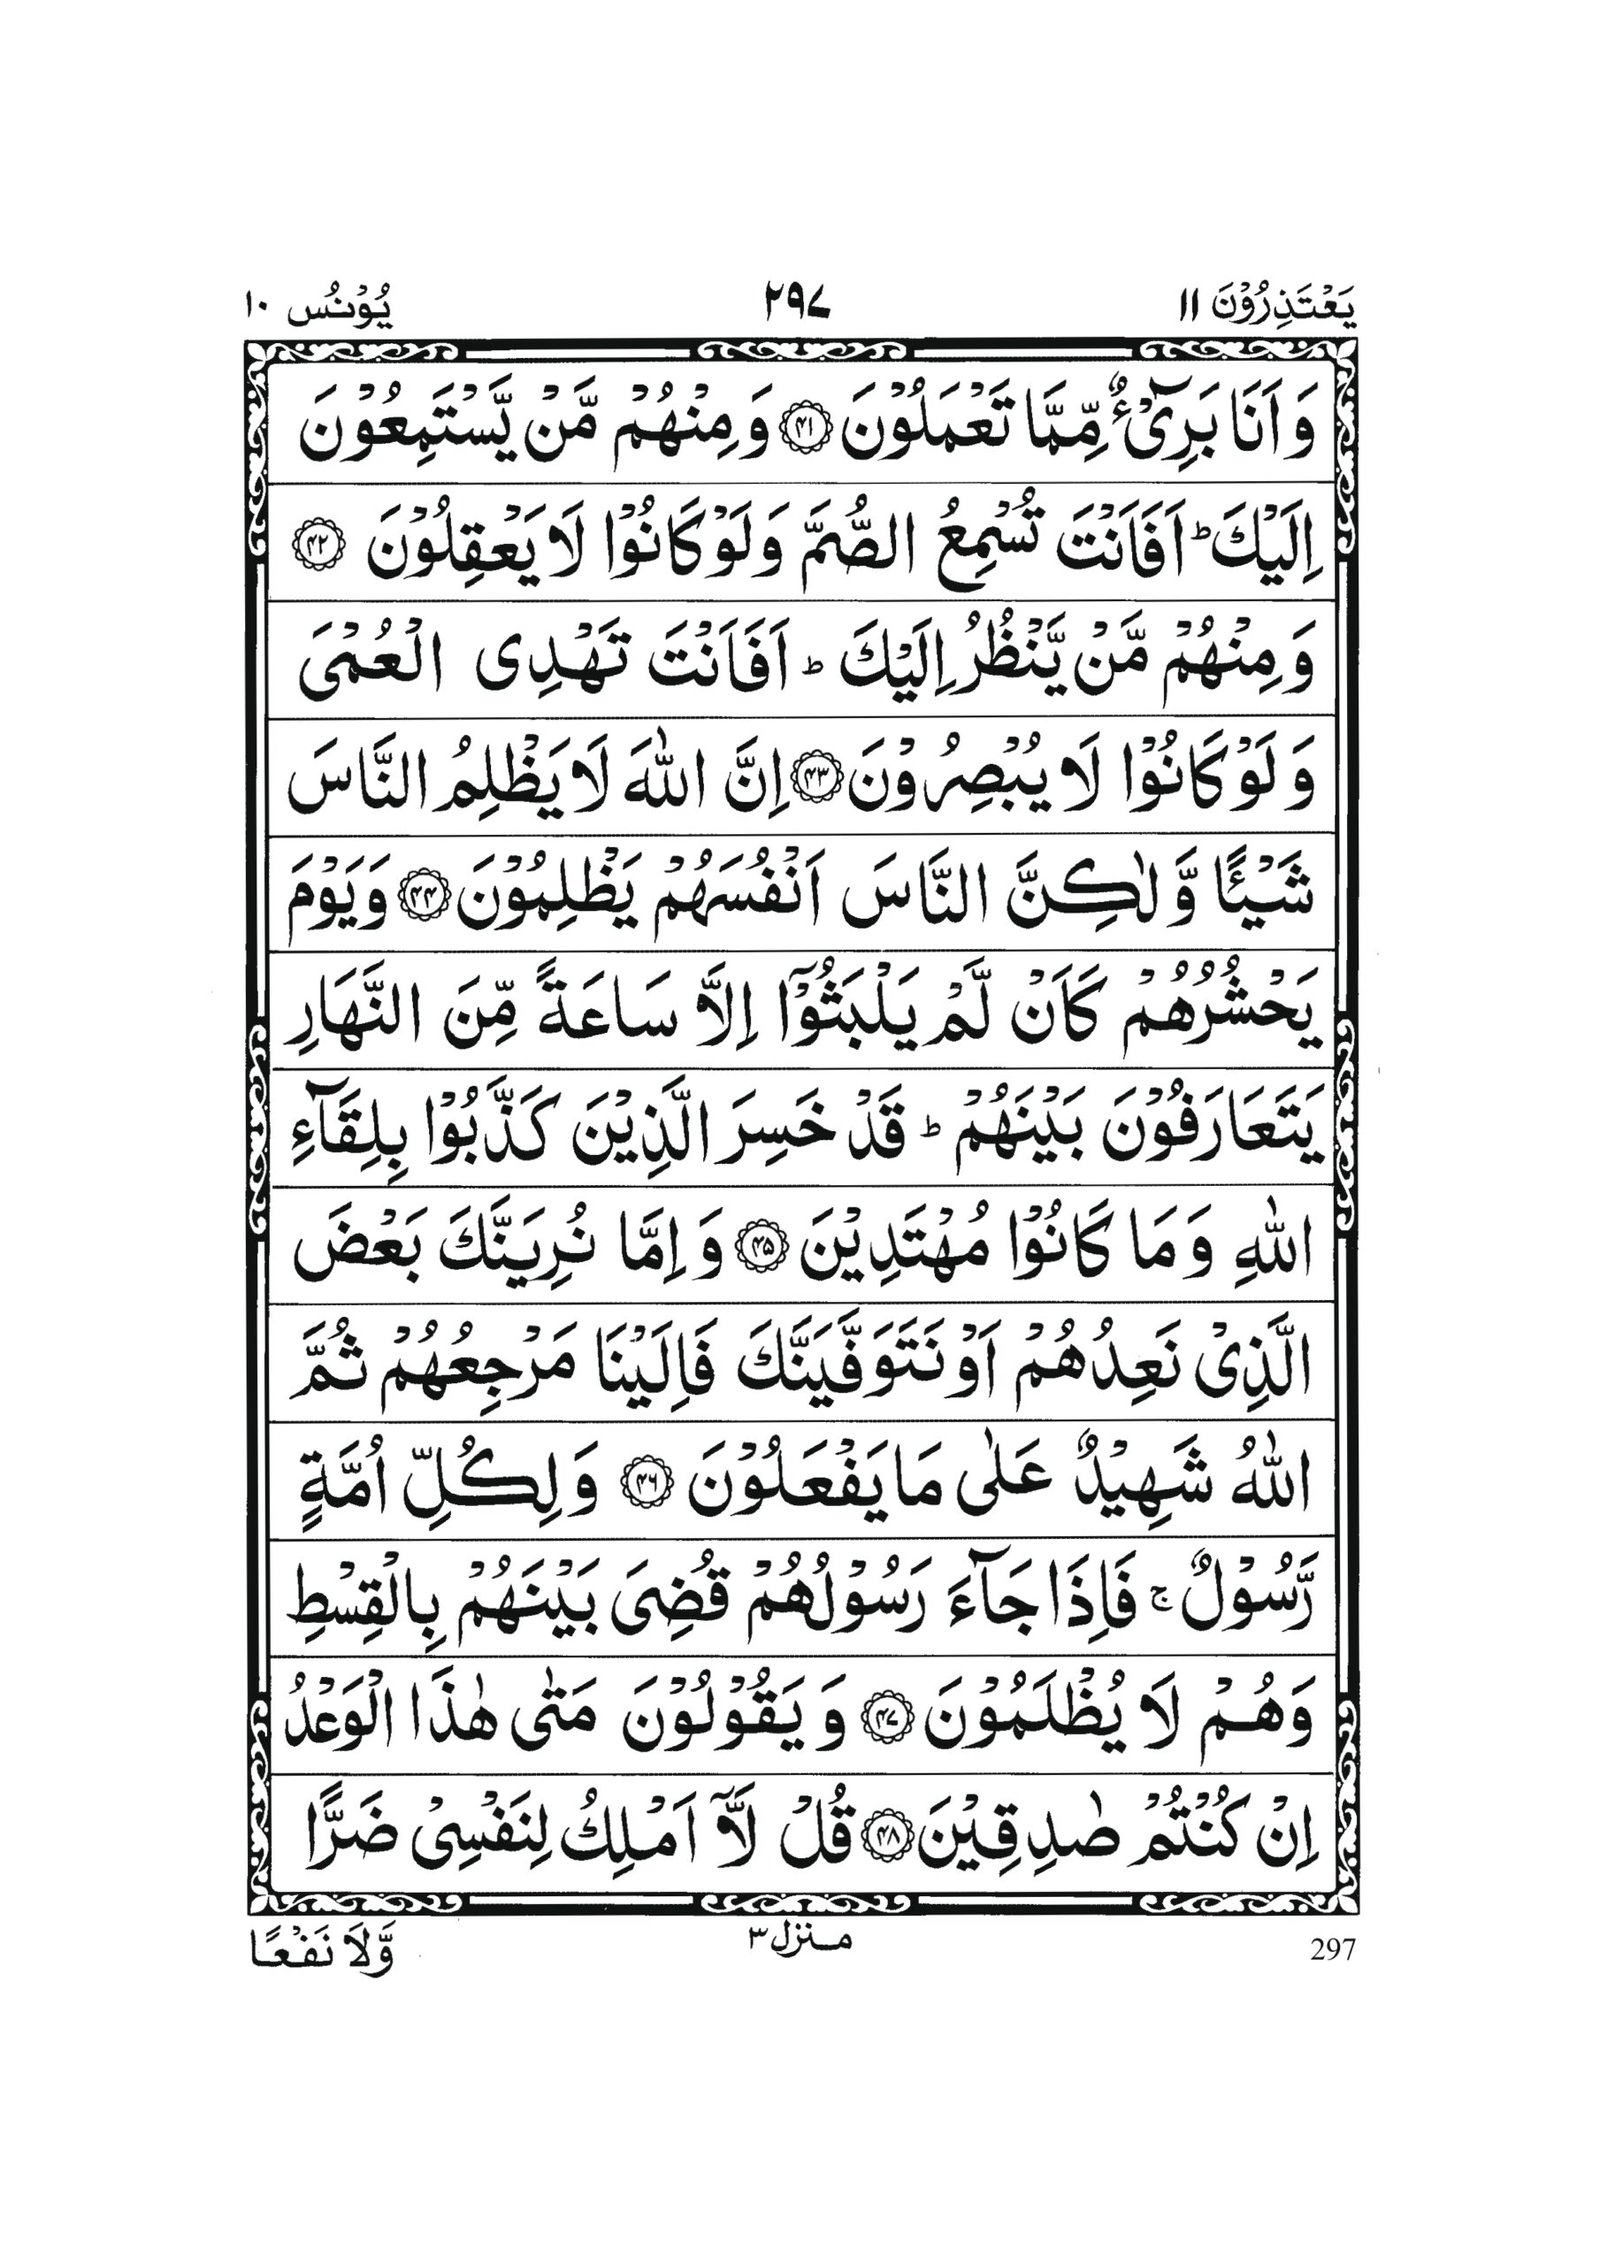 يَعْتَذِرُوْنَ ١١ ٢٩٧ يُوْنُس ١٠
وَ اَنَا بَرِیْٓءٌ مِّمَّا تَعْمَلُوْنَ ﴿۴۱﴾ وَ مِنْهُمْ مَّنْ یَّسْتَمِعُوْنَ
اِلَیْكَ ؕ اَفَاَنْتَ تُسْمِعُ الصُّمَّ وَ لَوْ كَانُوْا لَا یَعْقِلُوْنَ ﴿۴۲﴾
وَ مِنْهُمْ مَّنْ یَّنْظُرُ اِلَیْكَ ؕ اَفَاَنْتَ تَهْدِی الْعُمْیَ
وَ لَوْ كَانُوْا لَا یُبْصِرُوْنَ ﴿۴۳﴾ اِنَّ اللّٰهَ لَا یَظْلِمُ النَّاسَ
شَیْـًٔا وَّ لٰكِنَّ النَّاسَ اَنْفُسَهُمْ یَظْلِمُوْنَ ﴿۴۴﴾ وَ یَوْمَ
یَحْشُرُهُمْ كَاَنْ لَّمْ یَلْبَثُوْۤا اِلَّا سَاعَةً مِّنَ النَّهَارِ
یَتَعَارَفُوْنَ بَیْنَهُمْ ؕ قَدْ خَسِرَ الَّذِیْنَ كَذَّبُوْا بِلِقَآءِ
اللّٰهِ وَ مَا كَانُوْا مُهْتَدِیْنَ ﴿۴۵﴾ وَ اِمَّا نُرِیَنَّكَ بَعْضَ
الَّذِیْ نَعِدُهُمْ اَوْ نَتَوَفَّیَنَّكَ فَاِلَیْنَا مَرْجِعُهُمْ ثُمَّ
اللّٰهُ شَهِیْدٌ عَلٰی مَا یَفْعَلُوْنَ ﴿۴۶﴾ وَ لِكُلِّ اُمَّةٍ
رَّسُوْلٌ ۚ فَاِذَا جَآءَ رَسُوْلُهُمْ قُضِیَ بَیْنَهُمْ بِالْقِسْطِ
وَ هُمْ لَا یُظْلَمُوْنَ ﴿۴۷﴾ وَ یَقُوْلُوْنَ مَتٰی هٰذَا الْوَعْدُ
اِنْ كُنْتُمْ صٰدِقِیْنَ ﴿۴۸﴾ قُلْ لَّاۤ اَمْلِكُ لِنَفْسِیْ ضَرًّا
297 منزل ٣ وَّلَا نَفْعًا